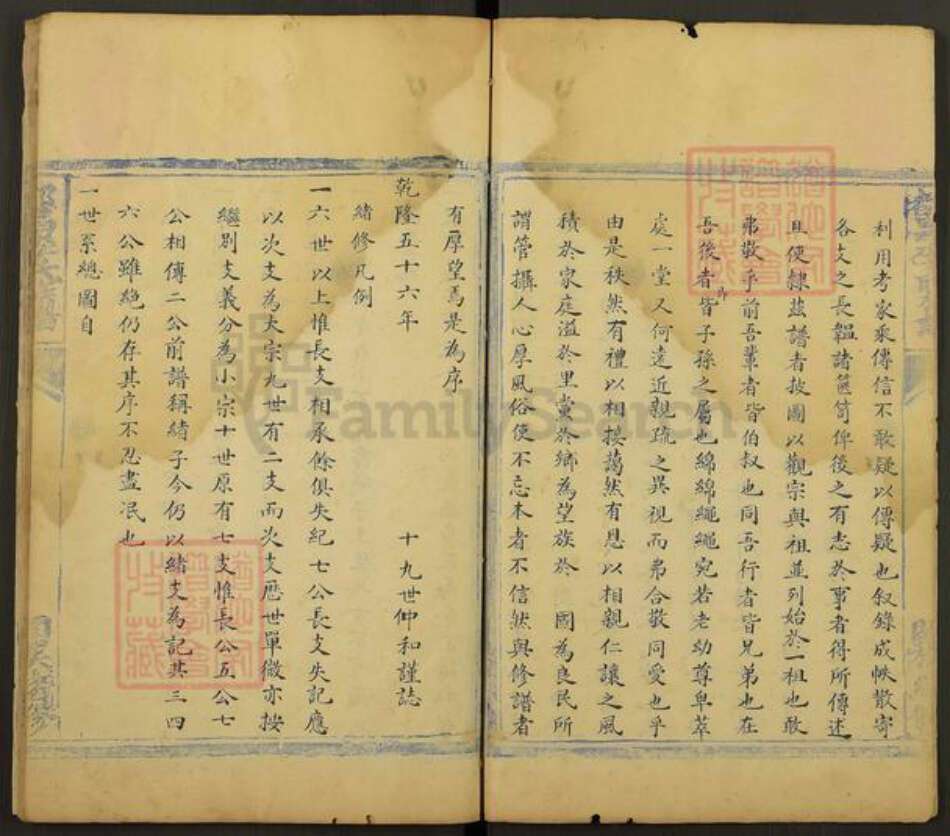 利用考家乘傳信不敢疑以傳疑也叙錄成帙散寄
各支之長韞諸篋笥俾後之有志於事者得所傳述
且使隸茲譜者披圖以觀宗與祖並列始於一祖也敢
弗敬乎前吾輩者皆伯叔也同吾行者皆兄弟也在
吾後者皆子孫之屬也綿綿繩繩宛若老幼尊卑萃
處一堂又何遠近親疏之異視而弗合敬同愛也乎
由是秩然有禮以相接藹然有恩以相親仁讓之風
積於家庭溢於里黨於鄉為望族於 國為良民所
謂管攝人心厚風俗使不忘本者不信然與修譜者
有厚望焉是為序
乾隆五十六年 十九世仲和謹誌
緒修凡例
一六世以上惟長支相承餘俱失紀七公長支失記應
以次支為大宗九世有二支而次支歷世單微亦按
繼別支義分為小宗十世原有七支惟長公五公七
公相傳二公前譜稱緒子今仍以緒支為記其三四
六公雖絕仍存其序不忍盡泯也
一世系總圖自
FamilySearch